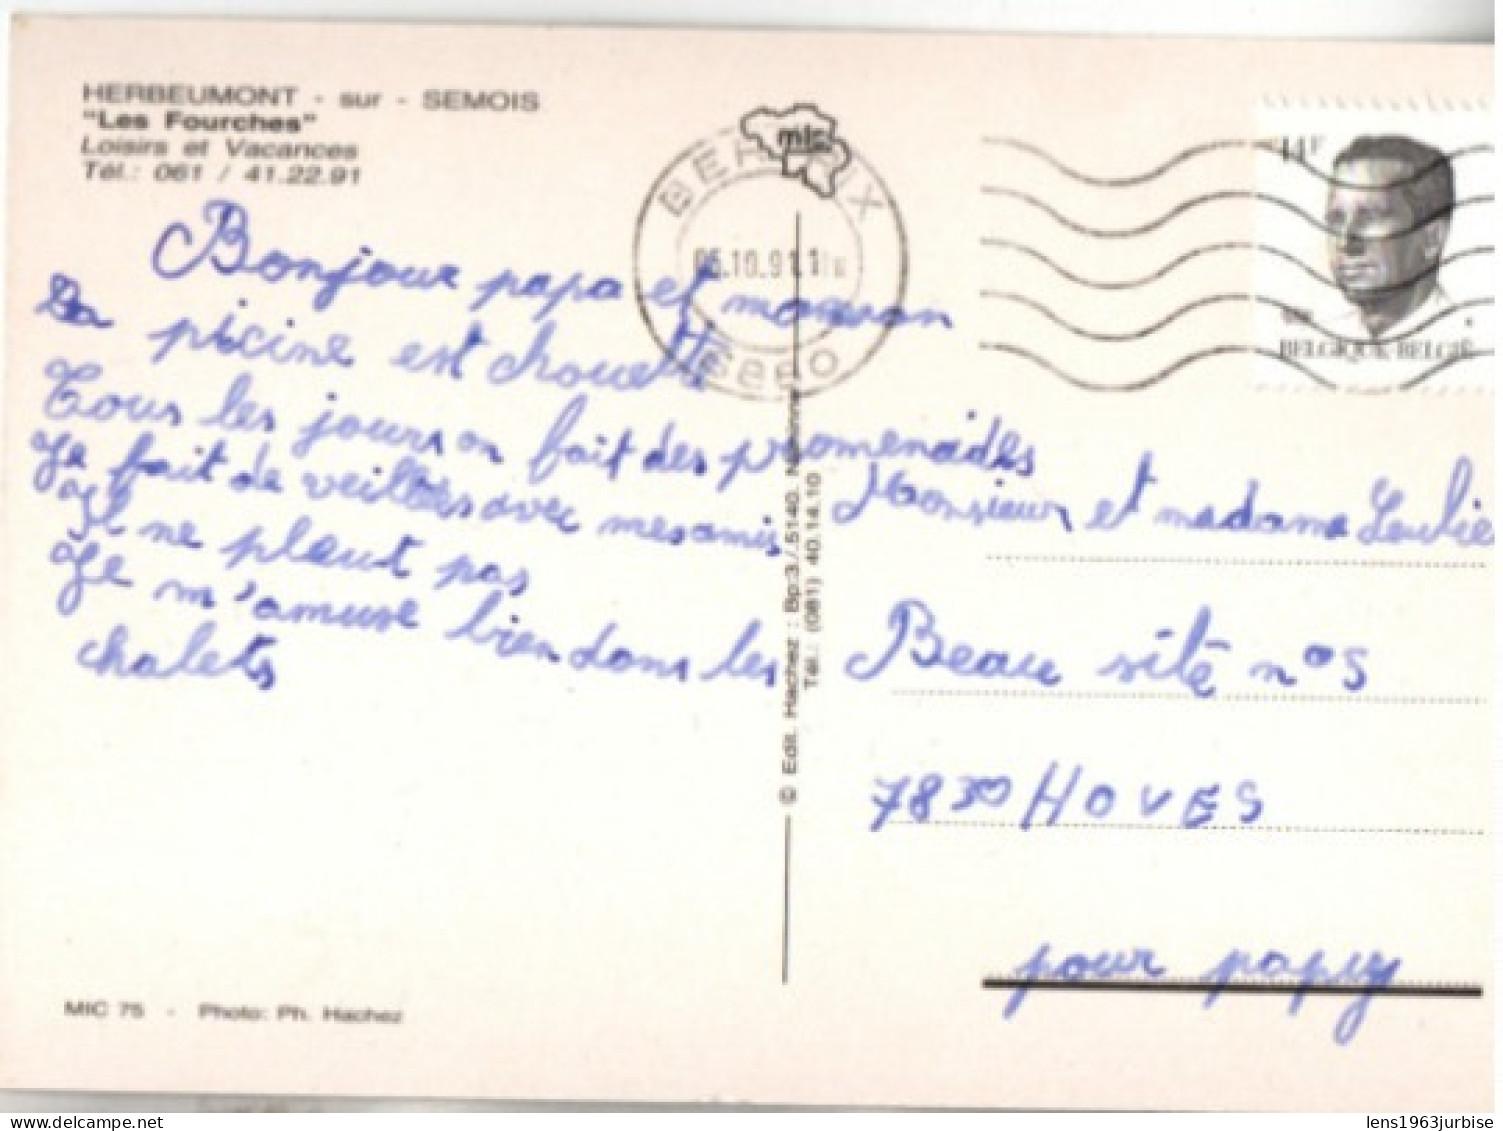 HERBEUMONT - sur - SEMOIS
"Les Fourches"
Loisirs et Vacances
Tél.: 061 / 41.22.91
mic
6880
14F
BELGIQUE-BELGIË
Bonjour papa et maman
La picine est chouette
Tous les jours on fait des promenades
Je fait de veillées avec mes amis
Il ne pleut pas
Je m'amuse bien dans les
chalets
© Edit. Hachez : Bp:3 / 5140,
Tél.: (081) 40.14.10
Monsieur et madame
Beau sité n° 5
7830 HOVES
pour papy
MIC 75 - Photo: Ph. Hachez
lens1963jurbise